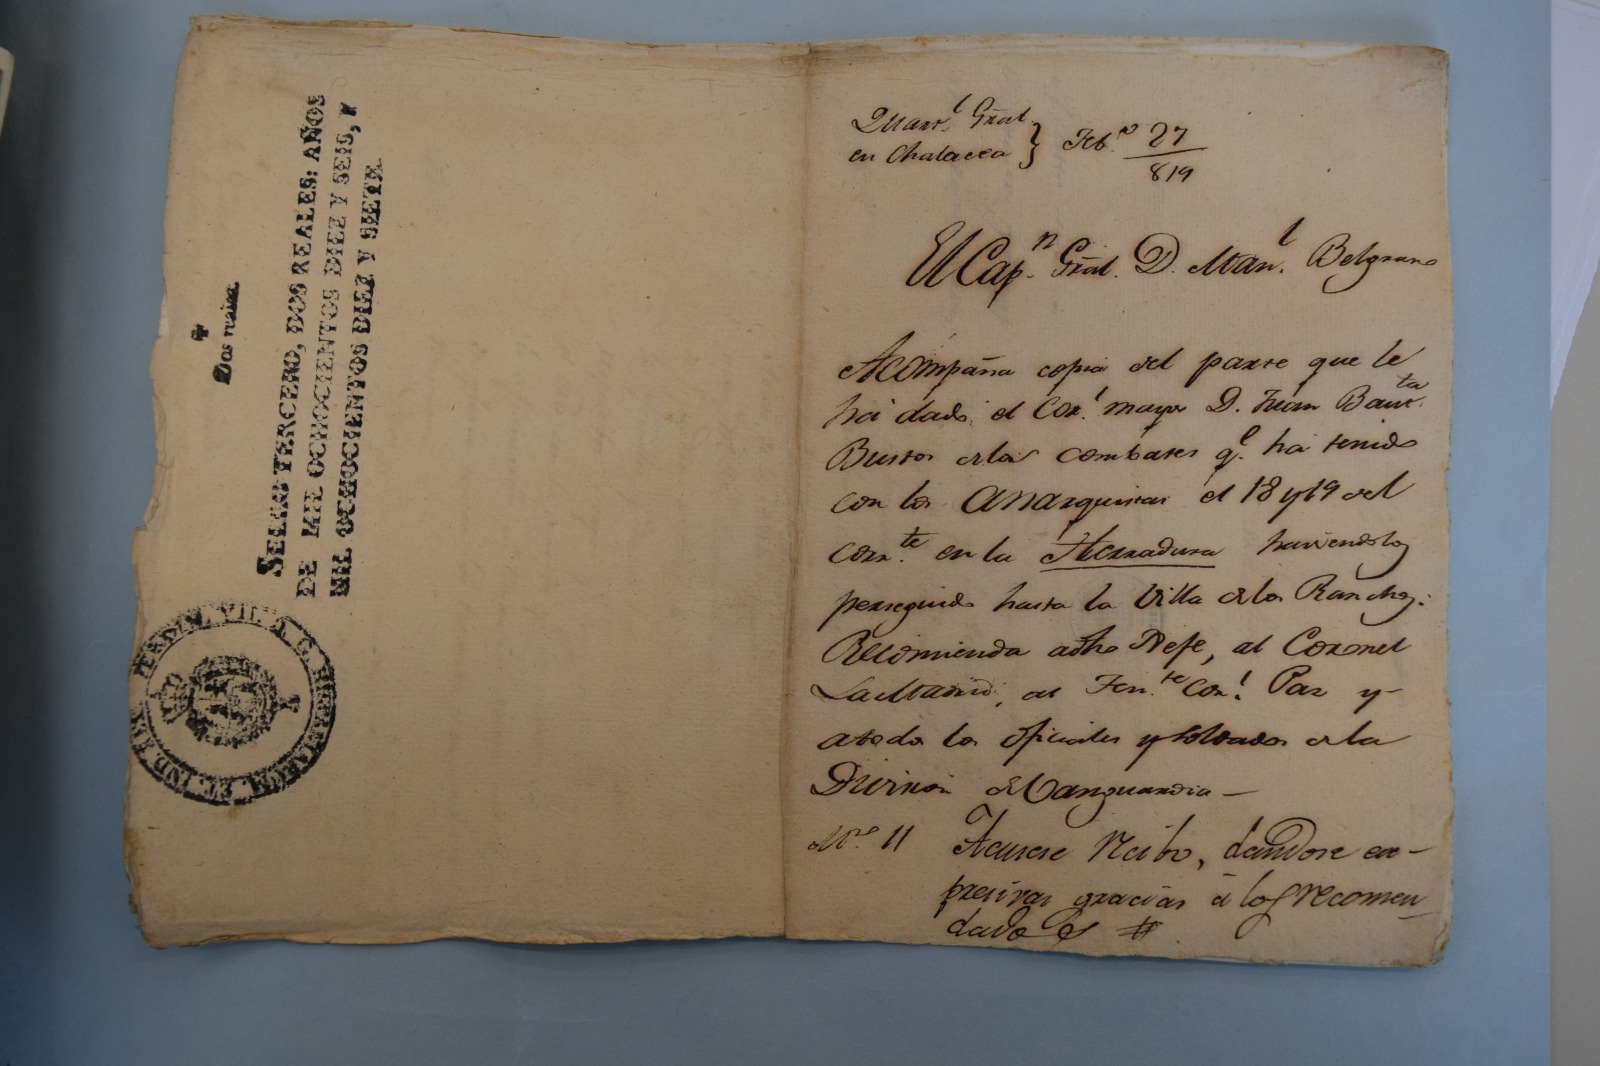 Dos reales.
SELLO TERCERO, DOS REALES: AÑOS
DE MIL OCHOCIENTOS DIEZ Y SEIS, Y
MIL OCHOCIENTOS DIEZ Y SIETE.
VII. D. G. HISPANIARUM. ET. IND. REX
Quart.l Gral.
en Chalacea } Feb.o 27
819
El Cap.n Gral. D. Man.l Belgrano
Acompaña copia del parte que le
ha dado el Cor.l mayor D. Juan Baut.ta
Bustos de los combates q.e ha tenido
con los anarquistas el 18 y 19 del
corr.te en la Herradura haviendolos
perseguido hasta la Villa de los Ranchos:
Recomienda a dho Jefe, al Coronel
LaMadrid, al Ten.te Cor.l Paz y
a todos los oficiales y soldados de la
Division de Vanguardia —
N.o 11 Acusese recibo, dandose ex-
presivas gracias á los recomen-
dados #